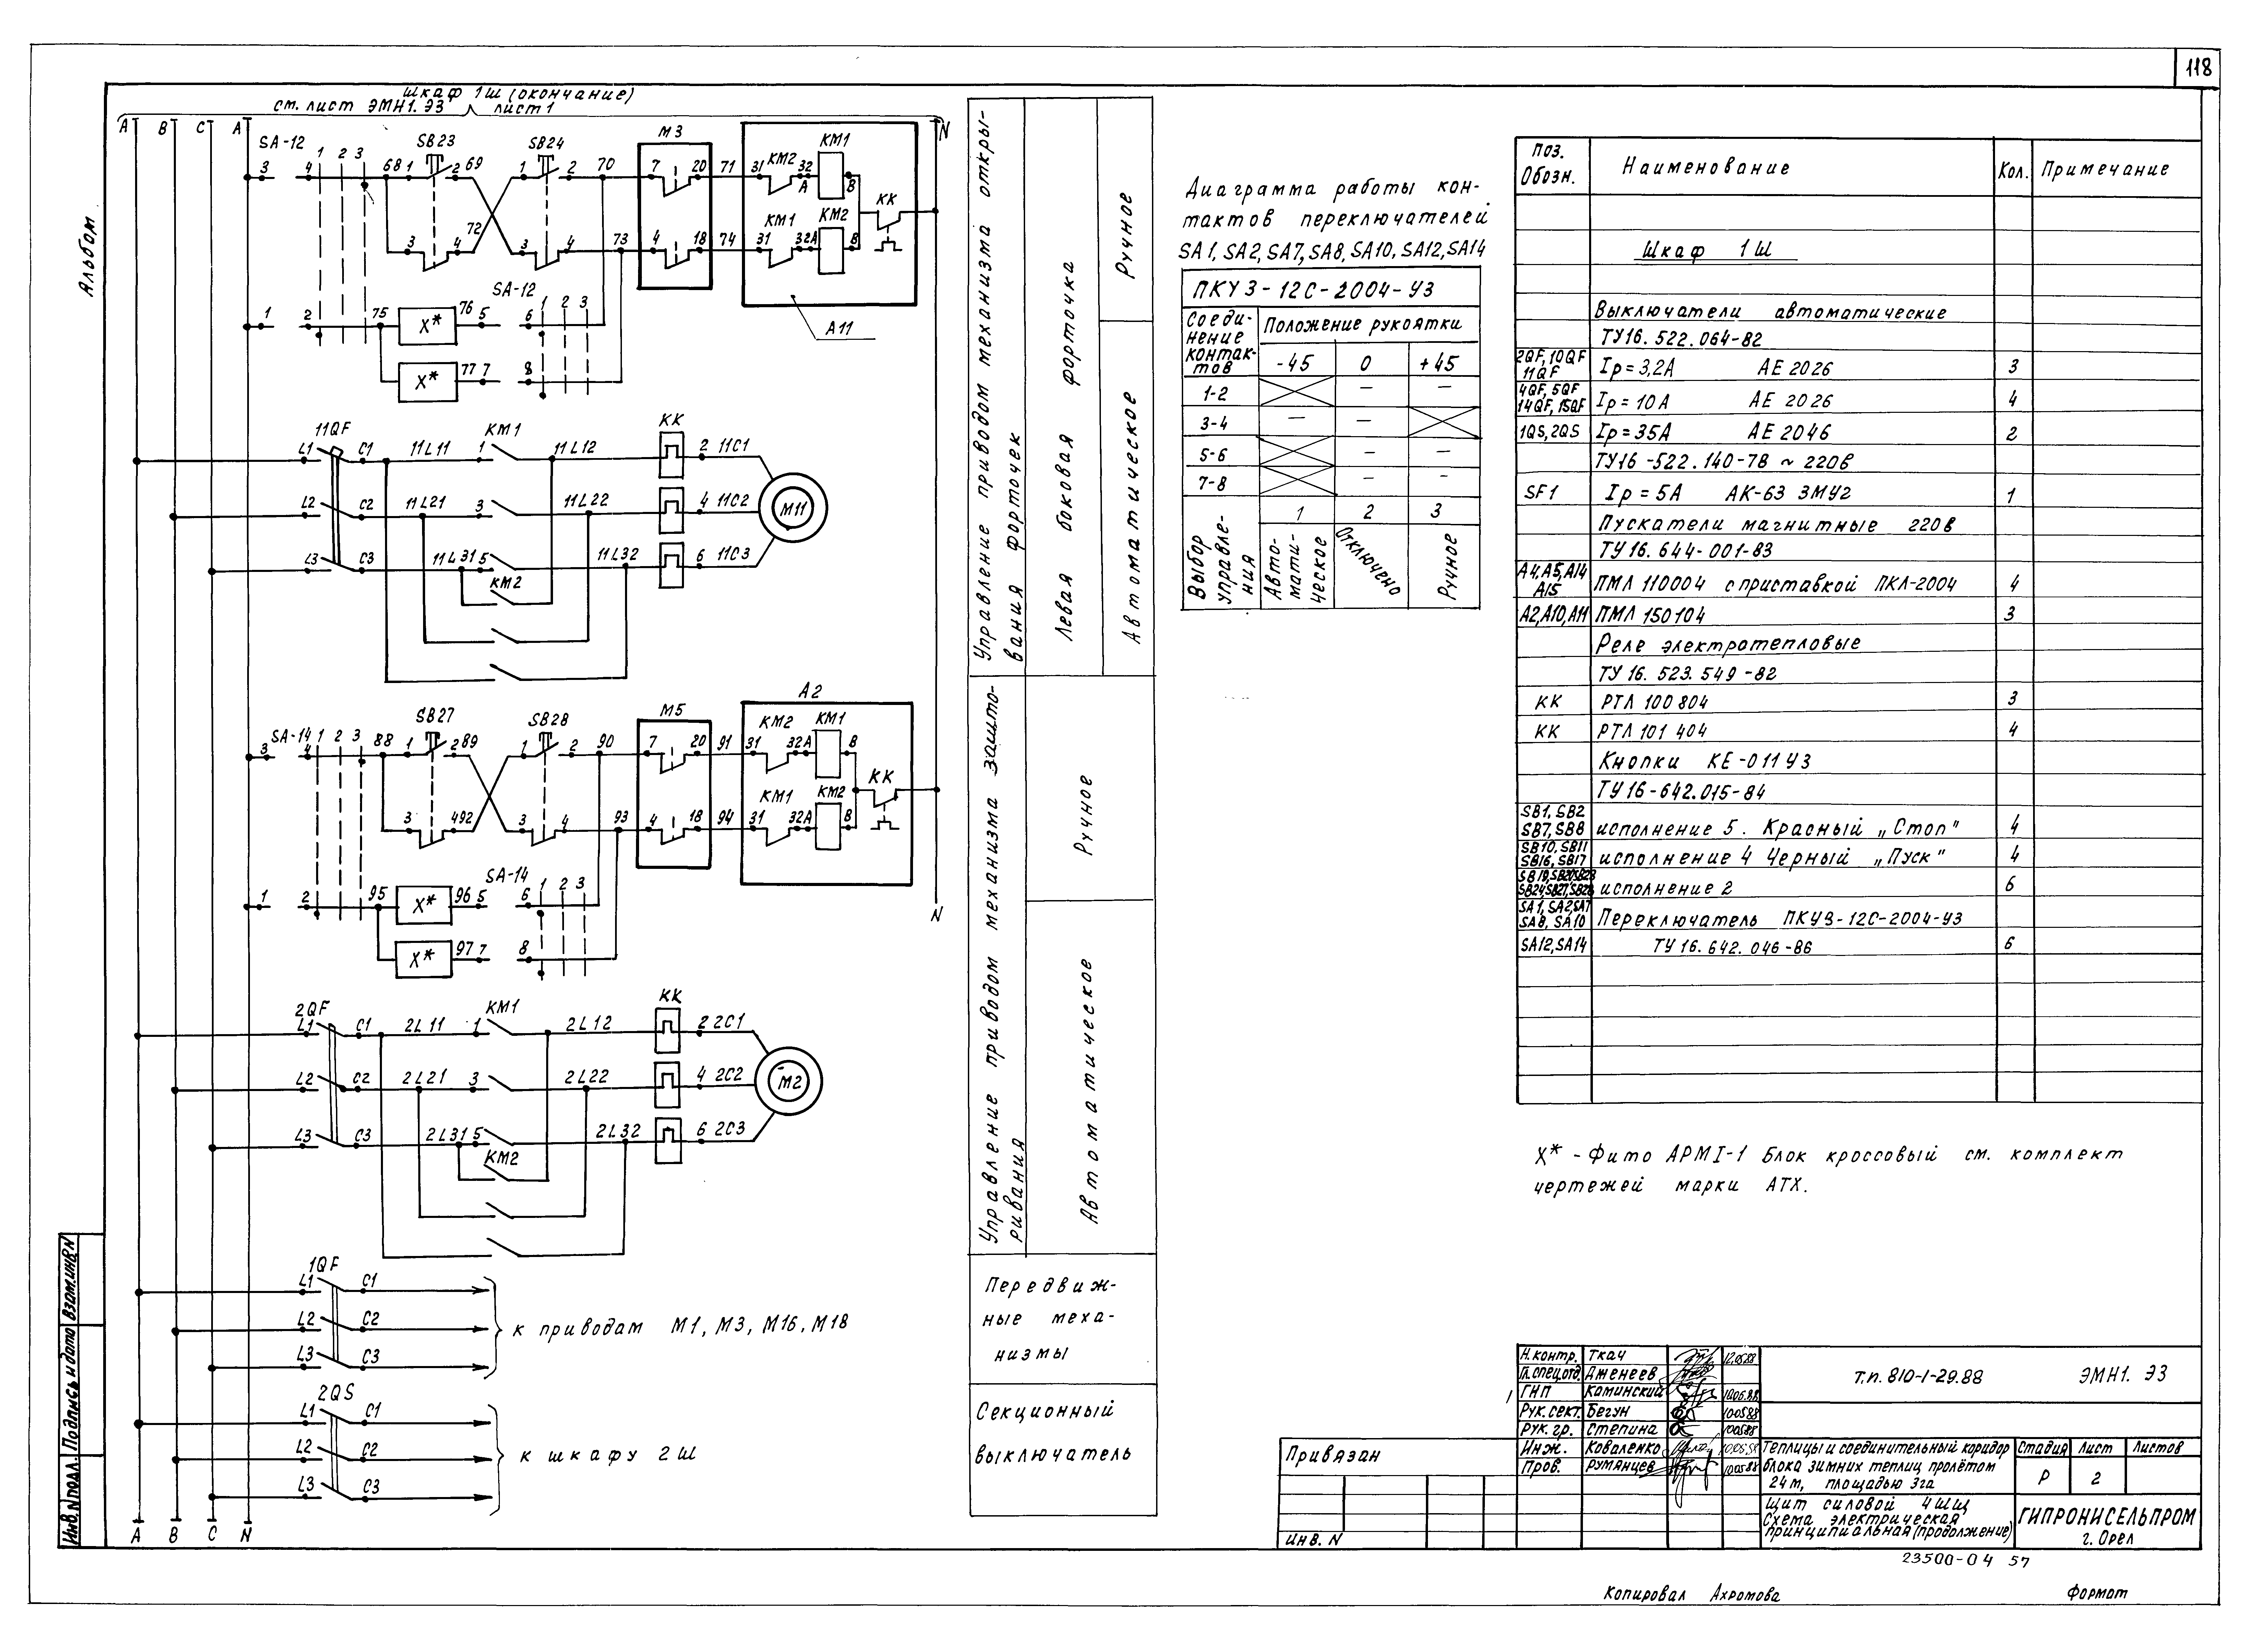 118
Альбом
Шкаф 1Ш (окончание)
см. лист ЭМН1.ЭЗ лист 1
A B C A N
SA-12 1 2 3 SB23 SB24 M3 KM1
3 4 68 1 2 69 1 2 70 7 20 71 31 KM2 32 A B KK
3 72 4 3 4 73 4 18 74 31 KM1 32A KM2 B
SA-12
1 2 75 X* 76 5 6 1 2 3 A11
X* 77 7 8
11QF KM1 KK
L1 C1 11L11 1 11L12 2 11C1
L2 C2 11L21 3 11L22 4 11C2 M11
L3 C3 11L31 5 11L32 6 11C3
KM2
A2
SA-14 1 2 3 SB27 SB28 M5 KM2 KM1
3 4 88 1 2 89 1 2 90 7 20 91 31 32A B KK
3 492 3 4 93 4 18 94 31 KM1 32A KM2 B
SA-14
1 2 95 X* 96 5 6 1 2 3
X* 97 7 8
N
2QF KM1 KK
L1 C1 2L11 1 2L12 2 2C1
L2 C2 2L21 3 2L22 4 2C2 M2
L3 C3 2L31 5 2L32 6 2C3
KM2
1QF
L1 C1
L2 C2 к приводам М1, М3, М16, М18
L3 C3
2QS
L1 C1
L2 C2 к шкафу 2Ш
L3 C3
A B C N
Управление приводом механизма откры-
вания форточек
Левая боковая форточка
Ручное
Автоматическое
Управление приводом механизма зашто-
ривания
Ручное
Автоматическое
Передвиж-
ные меха-
низмы
Секционный
выключатель
Диаграмма работы кон-
тактов переключателей
SA1, SA2, SA7, SA8, SA10, SA12, SA14
ПКУ3-12С-2004-У3
Соеди-
нение
контак-
тов
Положение рукоятки
-45 0 +45
1-2 — —
3-4 — —
5-6 — —
7-8 — —
1 2 3
Выбор
управле-
ния
Авто-
мати-
ческое
Отключено
Ручное
Поз. Обозн. Наименование Кол. Примечание
Шкаф 1Ш
Выключатели автоматические
ТУ16.522.064-82
2QF, 10QF
11QF Iр=3,2А АЕ 2026 3
4QF, 5QF
14QF, 15QF Iр=10А АЕ 2026 4
1QS, 2QS Iр=35А АЕ 2046 2
ТУ16-522.140-78 ~ 220в
SF1 Iр=5А АК-63 3МУ2 1
Пускатели магнитные 220в
ТУ16.644-001-83
А4, А5, А14
А15 ПМЛ 110004 с приставкой ПКЛ-2004 4
А2, А10, А11 ПМЛ 150104 3
Реле электротепловые
ТУ16.523.549-82
КК РТЛ 100 804 3
КК РТЛ 101 404 4
Кнопки КЕ-011У3
ТУ16-642.015-84
SB1, SB2
SB7, SB8 исполнение 5. Красный „Стоп" 4
SB10, SB11
SB16, SB17 исполнение 4 Черный „Пуск" 4
SB24, SB27, SB28 исполнение 2 6
SA1, SA2, SA7
SA8, SA10 Переключатель ПКУ3-12С-2004-У3
SA12, SA14 ТУ16.642.046-86 6
Х* - Фито АРМI-1 Блок кроссовый см. комплект
чертежей марки АТХ.
Н.контр. Ткач 12.05.88
Гл.спец.отд. Дженеев
ГИП Каминский 10.05.88
Рук.сект. Бегун 10.05.88
Рук.гр. Степина 10.05.88
Инж. Коваленко 10.05.88
Пров. Румянцев 10.05.88
Т.п. 810-1-29.88 ЭМН1. ЭЗ
Теплицы и соединительный коридор
блока зимних теплиц пролётом
24м, площадью 3га
Стадия Лист Листов
Р 2
Щит силовой 4ШЩ
Схема электрическая
принципиальная (продолжение)
ГИПРОНИСЕЛЬПРОМ
г. Орел
Привязан
Инв. N
23500-04 57
Копировал Ахромова Формат
Инв.N подл. Подпись и дата Взам.инв.N